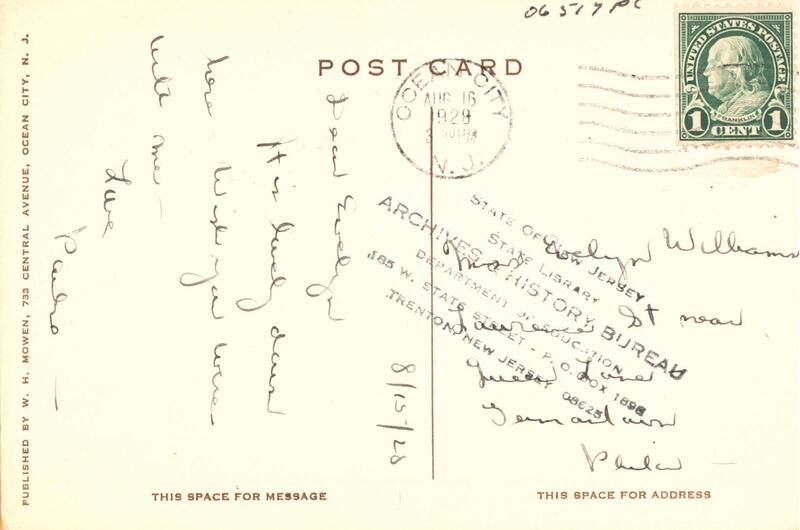 06517 PC
POST CARD
UNITED STATES POSTAGE
FRANKLIN
1 CENT 1
OCEAN CITY
AUG 16
1928
PM
N. J.
Dear Evelyn
It is lovely down
here Wish you were
with me —
Love
8/15/28
Evelyn Williams
Lawrence St near
Queen Lane
Germantown
Phila —
STATE OF NEW JERSEY
STATE LIBRARY
ARCHIVES & HISTORY BUREAU
DEPARTMENT OF EDUCATION
185 W. STATE STREET - P. O. BOX 1898
TRENTON, NEW JERSEY 08625
PUBLISHED BY W. H. MOWEN, 733 CENTRAL AVENUE, OCEAN CITY, N. J.
THIS SPACE FOR MESSAGE
THIS SPACE FOR ADDRESS